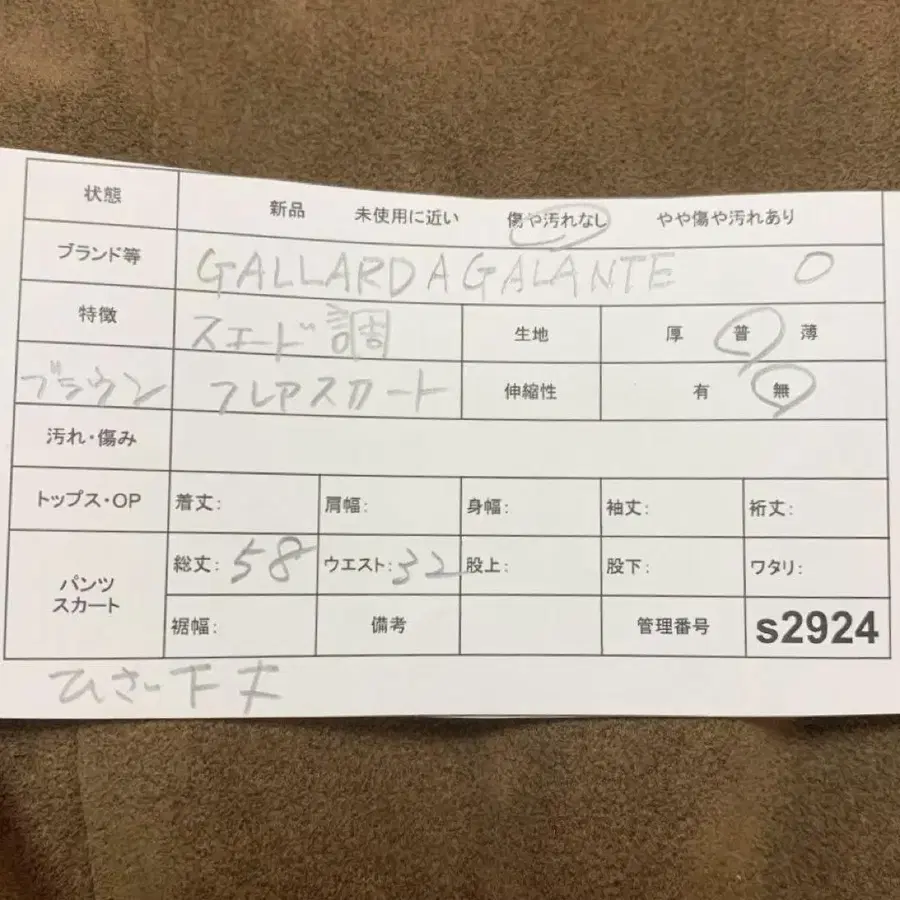 状態 新品 未使用に近い 傷や汚れなし やや傷や汚れあり
ブランド等 GALLARDAGALANTE 0
特徴 スエード調 生地 厚 普 薄
ブラウン フレアスカート 伸縮性 有 無
汚れ・傷み
トップス・OP 着丈: 肩幅: 身幅: 袖丈: 裄丈:
パンツ スカート 総丈: 58 ウエスト: 32 股上: 股下: ワタリ:
裾幅: 備考 管理番号 s2924
ひざ下丈